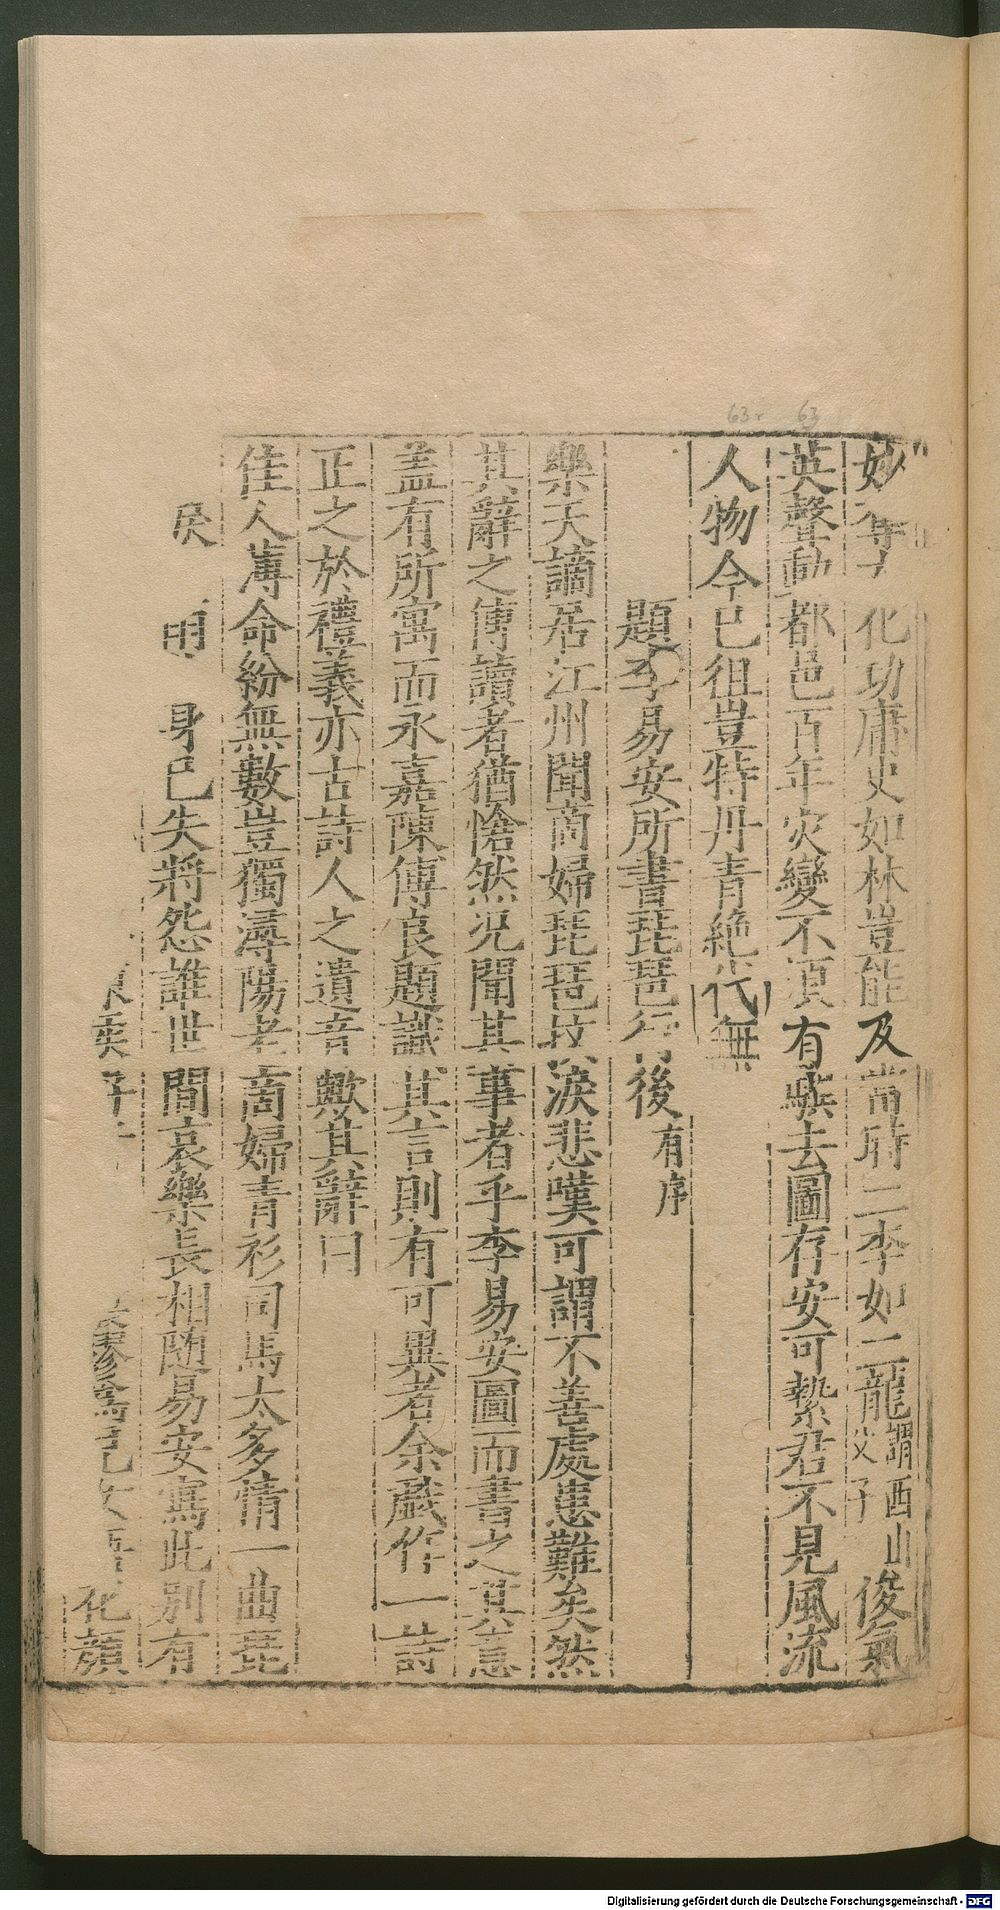 63r 63
妙 化功庸史如林豈能及當時二李如二龍謂西山父子俊氣
英聲動都邑百年灾變不須有嶽去圖存安可縶君不見風流
人物今已徂豈特丹青絶代無
題李易安所書琵琶行後有序
樂天謫居江州聞商婦琵琶抆淚悲嘆可謂不善處患難矣然
其辭之傳讀者猶愴然況聞其事者乎李易安圖而書之其意
盖有所寓而永嘉陳傅良題識其言則有可異者余戲作一詩
正之於禮義亦古詩人之遺音歟其辭曰
佳人薄命紛無數豈獨潯陽老商婦青衫司馬太多情一曲琵
戾 明 身已失將怨誰世間哀樂長相随易安寫此别有
化顔
Digitalisierung gefördert durch die Deutsche Forschungsgemeinschaft - DFG